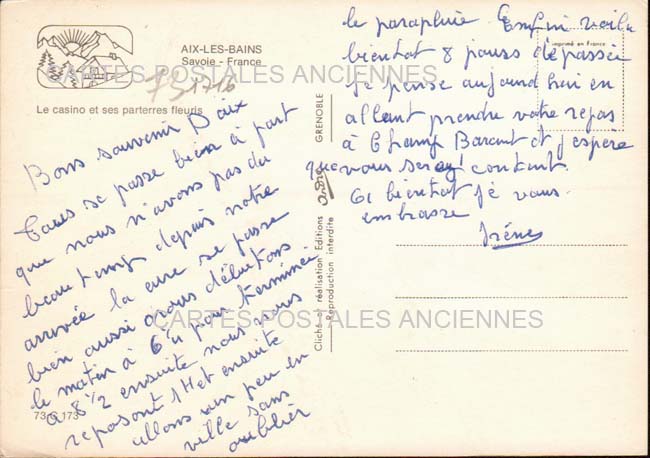 AIX-LES-BAINS
Savoie - France
CARTES POSTALES ANCIENNES
73
1716
Le casino et ses parterres fleuris
Bons souvenir D aix
Tous se passe bien à part
que nous n'avons pas du
beau temps depuis notre
arrivée la cure se passe
bien aussi nous débutons
le matin à 6h¼ pour terminer
a 8½ ensuite nous nous
reposont 1H et ensuite
allons un peu en
ville sans
oublier
73 173
GRENOBLE
André
Cliché et réalisation Editions
Reproduction interdite
Imprimé en France
le parapluie. Enfin voila
bientot 8 jours de passée
Je pense aujourd hui en
allant prendre votre repas
à Champ Baraut et j'espère
que vous serez content.
A bientot je vous
embrasse
Irène
CARTES POSTALES ANCIENNES